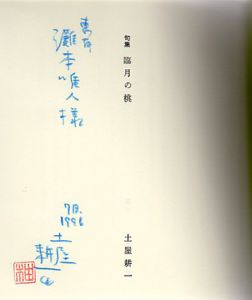 句集
臨月の桃
土屋耕一
恵存
灘本唯人様
7月.
1996
土屋
耕一